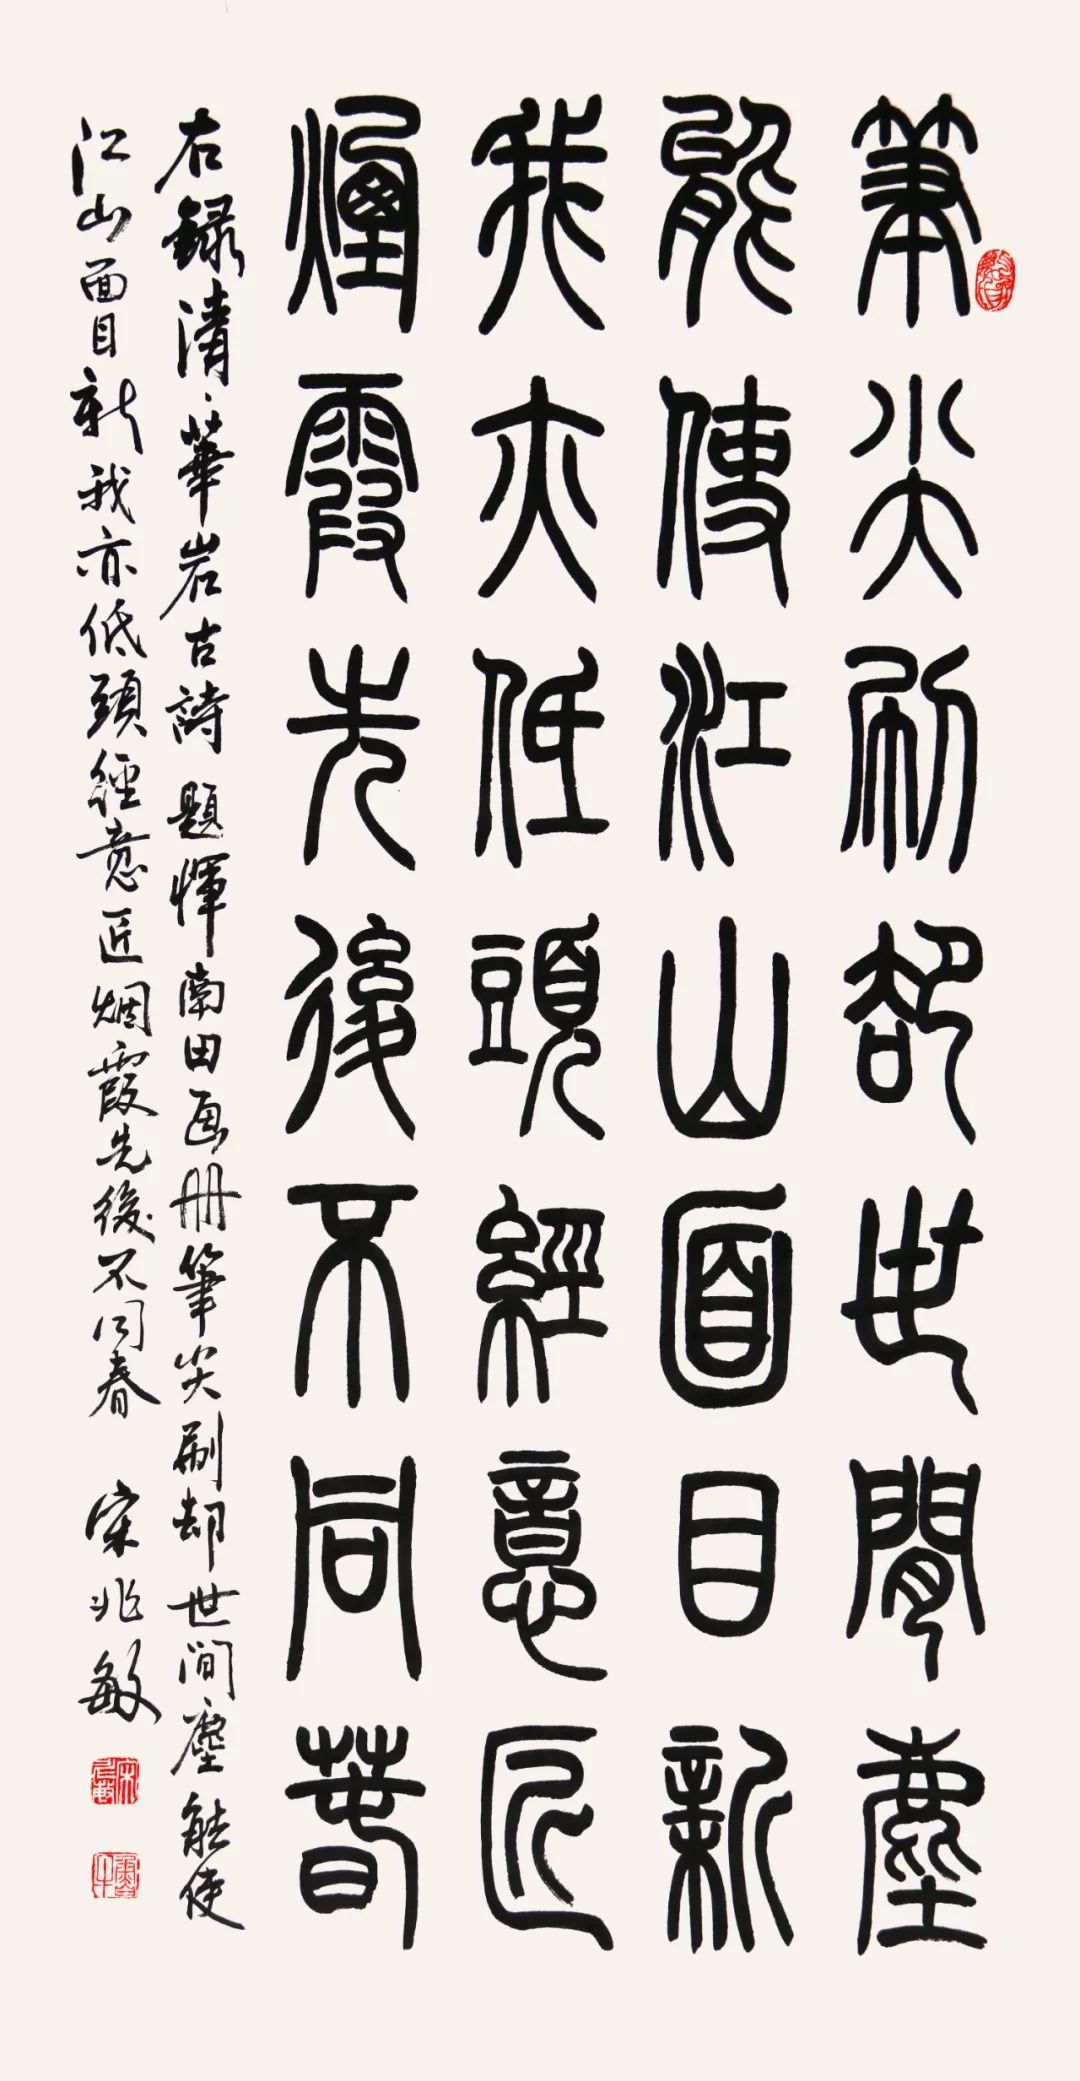 筆尖刷却世間塵
能使江山面目新
我亦低頭經意匠
煙霞先後不同春
右録清、華岩古詩題惲南田画册筆尖刷却世間塵能使
江山面目新我亦低頭經意匠烟霞先後不同春 宋兆敏